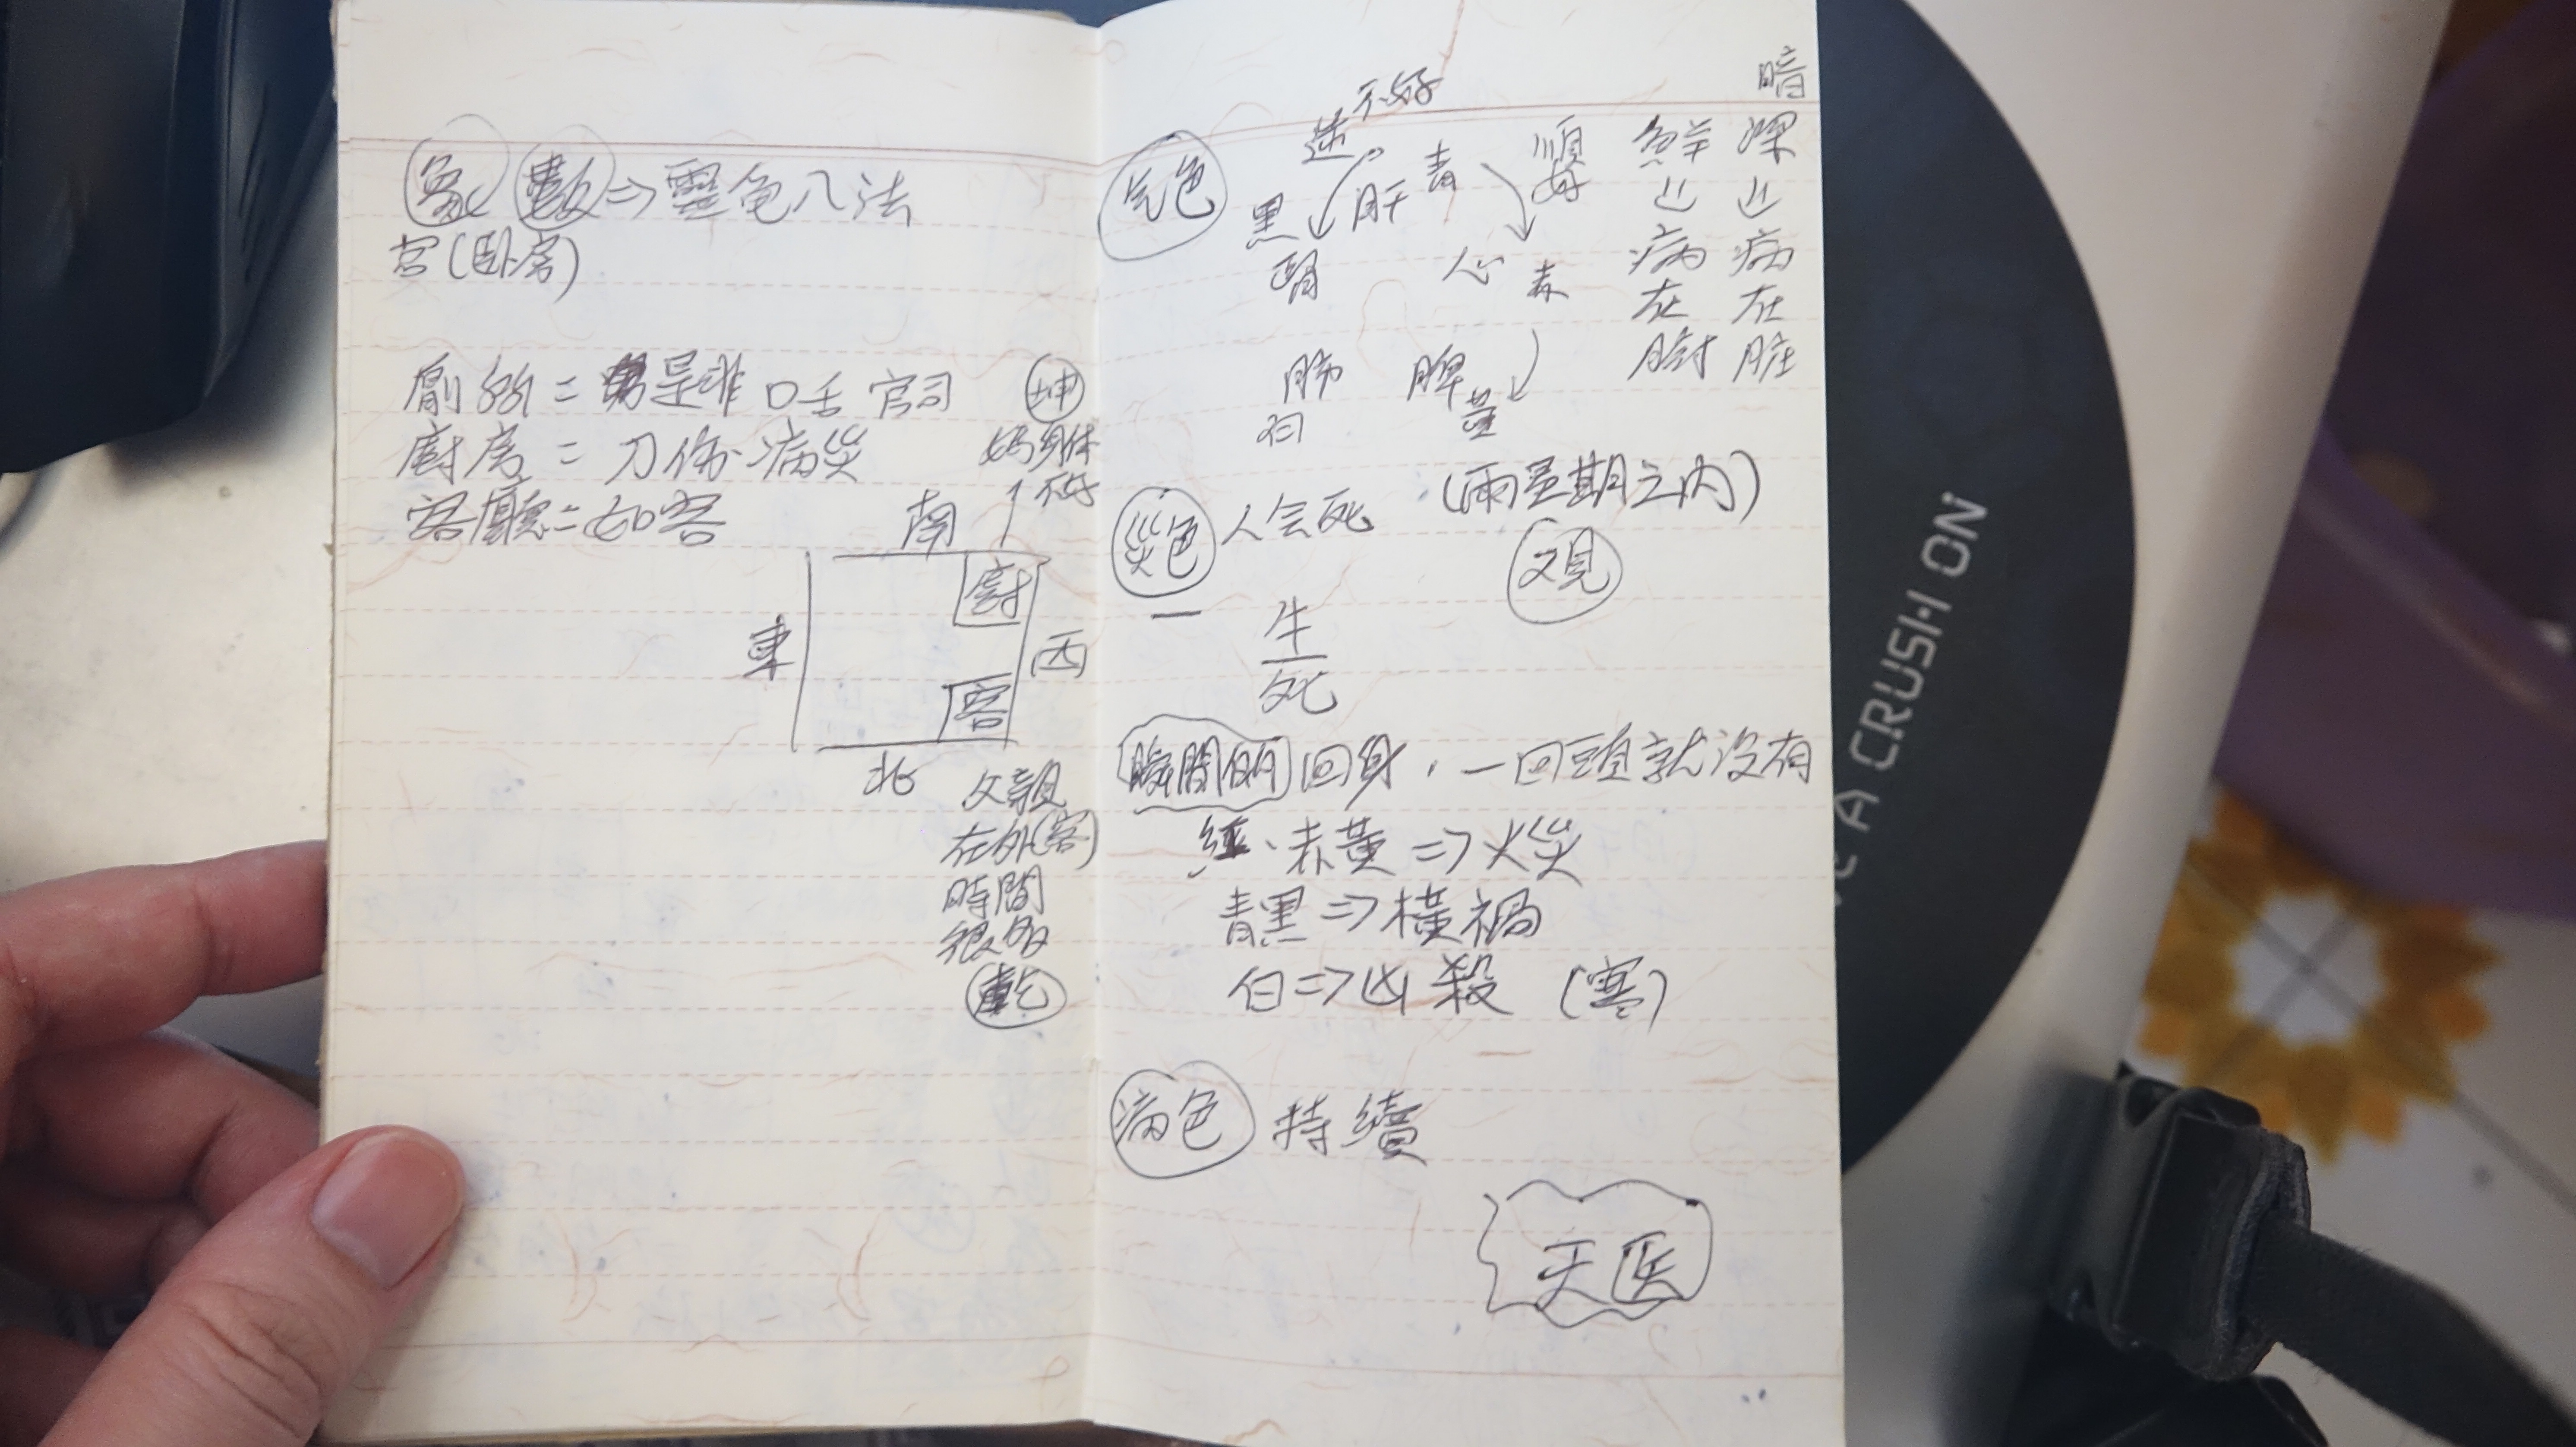 象 數 ⇒ 靈色八法
宮(臥房)
廁所 = 是非 口舌 官司
廚房 = 刀傷 病災
客廳 = 如客
坤
媽身体
不好
南
廚
東
西
客
北
父親
在外(客)
時間
很多
乾
气色
逆 不好
黑
腎
肝 青
順
好
心 赤
脾 黃
肺
白
鮮 ⇒ 病在腑
暗
深 ⇒ 病在脏
災色 人会死 (兩星期之内)
观
一 生
死
瞬間的 回身,一回頭就没有
紅、赤黃 ⇒ 火災
青黑 ⇒ 橫禍
白 ⇒ 凶殺 (寒)
病色 持續
天医
A CRUSH ON